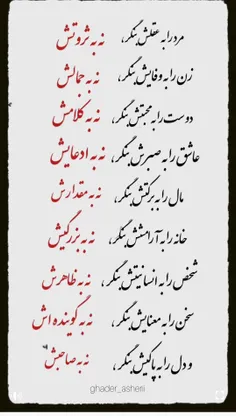 مرد را به عقلش بنگر، نه به ثروتش
زن را به وفایش بنگر، نه به جمالش
دوست را به محبتش بنگر، نه به کلامش
عاشق را به صبرش بنگر، نه به ادعایش
مال را به برکتش بنگر، نه به مقدارش
خانه را به آرامشش بنگر، نه به بزرگیش
شخص را به انسانیتش بنگر، نه به ظاهرش
سخن را به معنایش بنگر، نه به گوینده اش
و دل را به پاکیش بنگر، نه به صاحبش
ghader_asheri